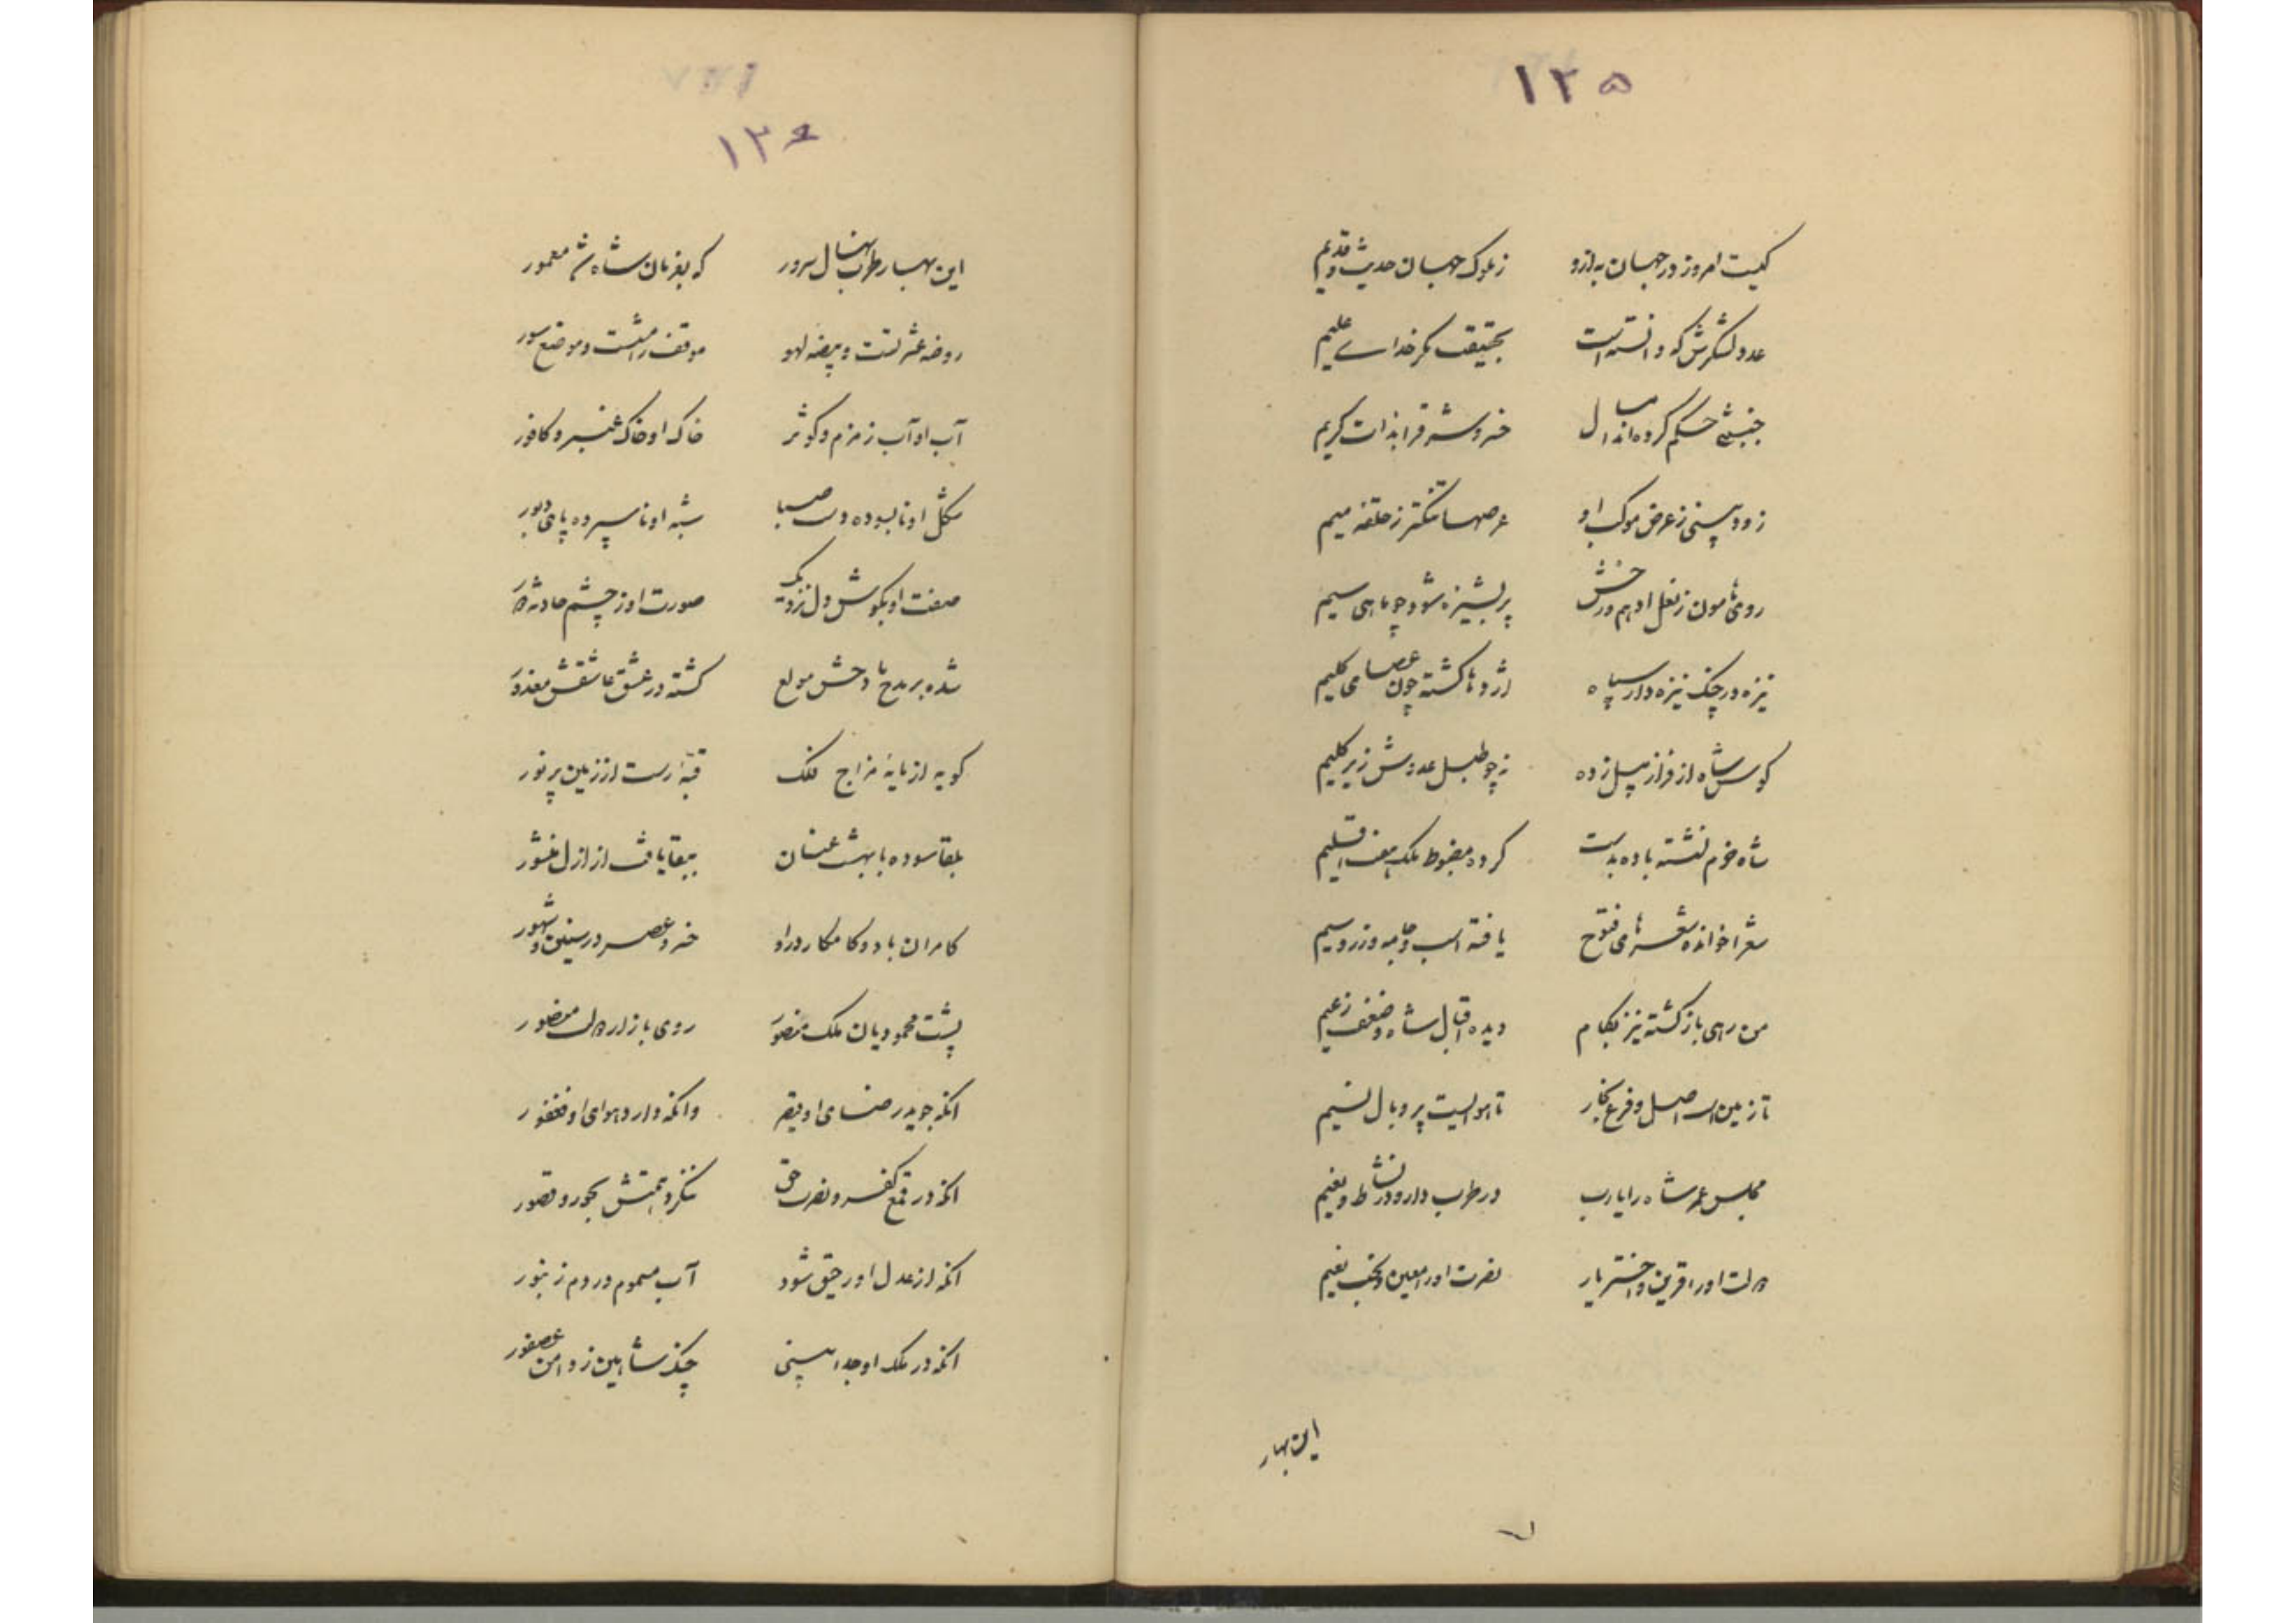 ۱۲۵
کیست امروز در جهان به ازو زملوک جهان حدیث و قدیم
عدد لشکرش که دانسته است بحقیقت مگر خدای علیم
جنبشی حکم کرده اند امسال خسرو شرق را بذات کریم
زود بینی ز عرض موکب او عرصها تنگتر ز حلقه میم
روی هامون ز نعل ادهم و رخش پر پشیزه شود چو ماهی سیم
نیزه در چنگ نیزه دار سپاه اژدها گشته چون عصای کلیم
کوس شاه از فراز پیل زده نه چو طبل عدوش زیر گلیم
شاه خرم نشسته باده بدست کرده مضبوط ملک هفت اقلیم
شعرا خوانده شعرهای فتوح یافته اسب و جامه و زر و سیم
من رهی بازگشته نیز بکام دیده اقبال شاه و ضعف زعیم
تا زمین است اصل و فرع بخار تا هوا نیست پر و بال نسیم
مجلس عمر شاه را یارب در طرب دار و در نشاط و نعیم
دولت او را قرین و اختر یار نصرت او را معین و بخت نعیم
این بهار
۱۲۶
این بهار طرب نهال سرور که بفرمان شاه شد معمور
روضه عشرتست و بیضه لهو موقف رامشست و موضع سور
آب او آب زمزم و کوثر خاک او خاک عنبر و کافور
شکل او نابسوده دست صبا شبه او ناسپرده پای دبور
صفت او بگوش دل نزدیک صورت او ز چشم حادثه دور
شده بر مدح مادحش مولع گشته در عشق عاشقش معذور
گویه از مایهٔ مزاج فلک قبّه‌ ارست از زمین پر نور
بلقا سوده با بهشت عنان ببقا یافت از ازل منشور
کامران باد و کامکار درو خسرو عصر در سنین و شهور
پشت محمودیان ملک منصور روی بازار دولت منصور
آنکه جوید رضای او قیصر وانکه دارد هوای او فغفور
آنکه در قمع کفر و نصرت حق ننگرد همتش بحور و قصور
آنکه از عدل او رحیق شود آب مسموم در دم زنبور
آنکه در ملک او جدا بینی چنگ شاهین ز دامن عصفور